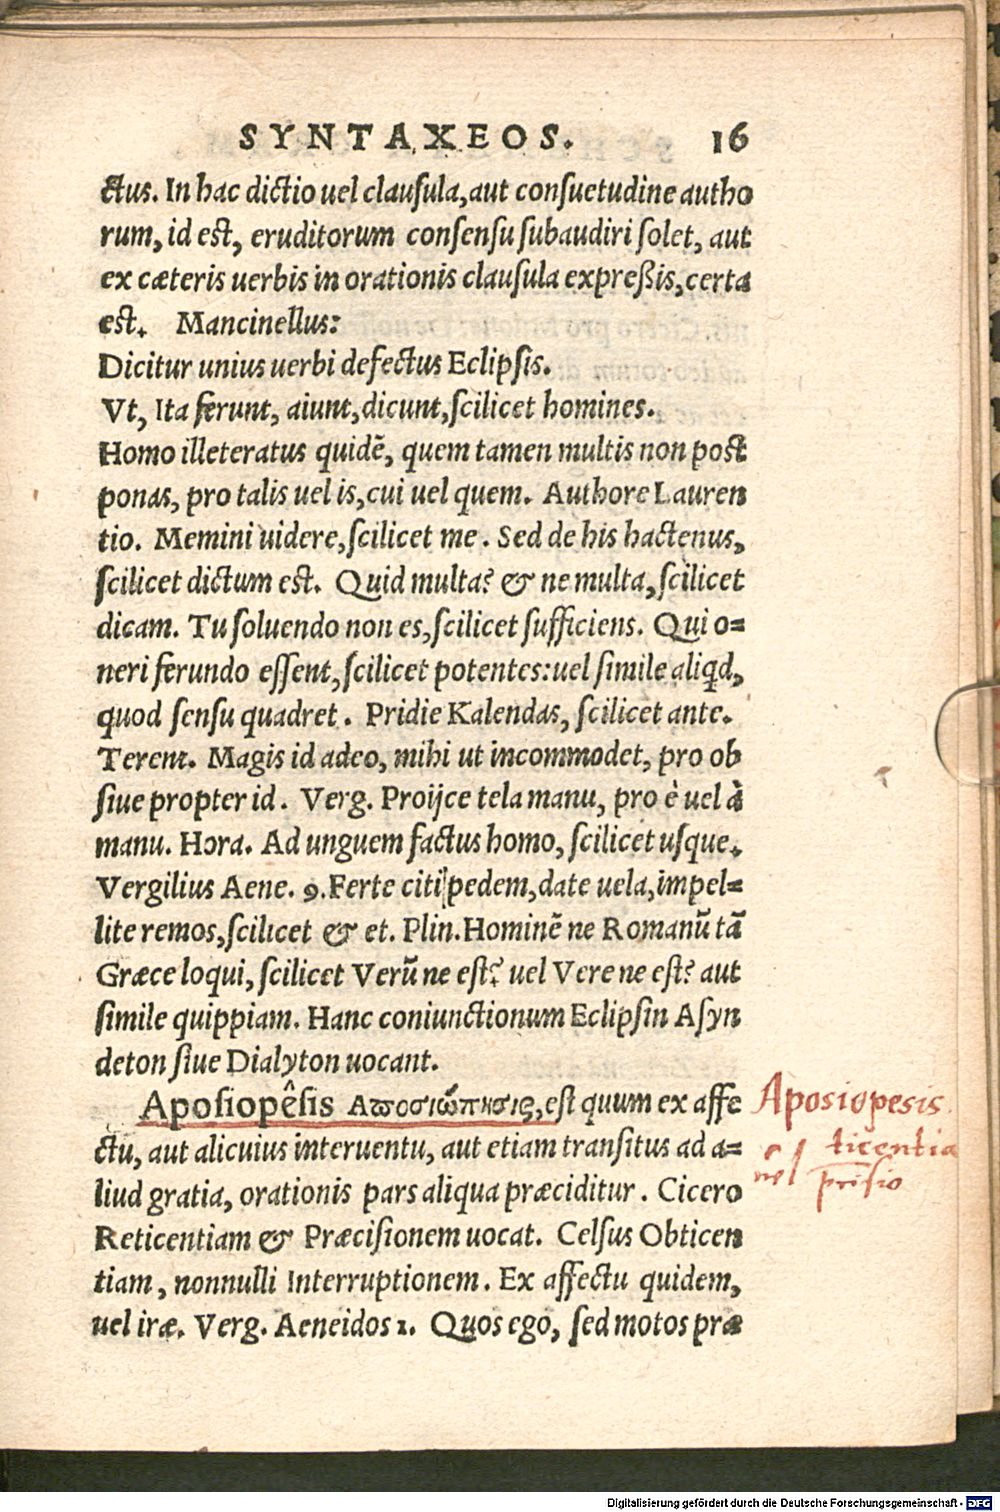 SYNTAXEOS. 16
ctus. In hac dictio uel clausula, aut consuetudine autho
rum, id est, eruditorum consensu subaudiri solet, aut
ex cæteris uerbis in orationis clausula expreßis, certa
est. Mancinellus:
Dicitur unius uerbi defectus Eclipsis.
Vt, Ita ferunt, aiunt, dicunt, scilicet homines.
Homo illeteratus quidẽ, quem tamen multis non post
ponas, pro talis uel is, cui uel quem. Authore Lauren
tio. Memini uidere, scilicet me. Sed de his hactenus,
scilicet dictum est. Quid multa? & ne multa, scilicet
dicam. Tu soluendo non es, scilicet sufficiens. Qui o=
neri ferundo essent, scilicet potentes: uel simile aliqd,
quod sensu quadret. Pridie Kalendas, scilicet ante.
Terent. Magis id adeo, mihi ut incommodet, pro ob
siue propter id. Verg. Proijce tela manu, pro è uel à
manu. Hora. Ad unguem factus homo, scilicet usque.
Vergilius Aene. 9. Ferte citi pedem, date uela, impel=
lite remos, scilicet & et. Plin. Hominẽ ne Romanũ tã
Græce loqui, scilicet Verũ ne est? uel Vere ne est? aut
simile quippiam. Hanc coniunctionum Eclipsin Asyn
deton siue Dialyton uocant.
Aposiopêsis Αποσιώπησις, est quum ex affe
ctu, aut alicuius interuentu, aut etiam transitus ad a=
liud gratia, orationis pars aliqua præciditur. Cicero
Reticentiam & Præcisionem uocat. Celsus Obticen
tiam, nonnulli Interruptionem. Ex affectu quidem,
uel iræ. Verg. Aeneidos 1. Quos ego, sed motos præ
Aposiopesis
ticentia
uel
Digitalisierung gefördert durch die Deutsche Forschungsgemeinschaft - DFG